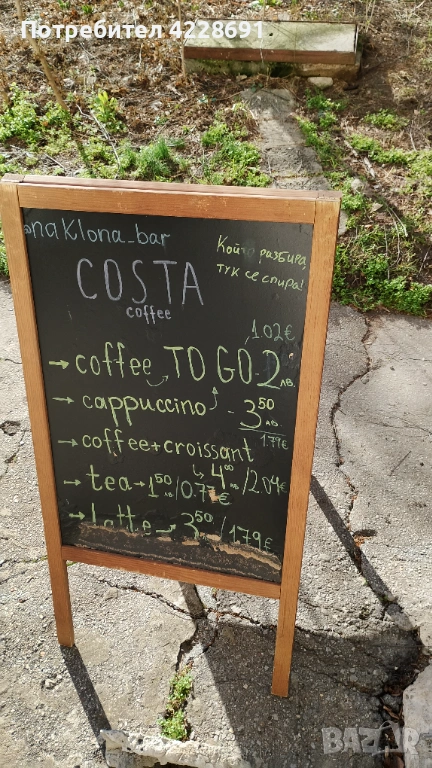 Потребител 4228691
@naklona_bar
Който разбира,
тук се спира!
COSTA
coffee
1.02€
→ coffee TO GO-2лв.
→ cappuccino - 3⁵⁰лв.
1.79€
→ coffee+croissant
↳ 4⁰⁰лв/2.04€
→ tea → 1⁵⁰/0.77€
→ latte → 3⁵⁰лв/1.79€
BAZAR